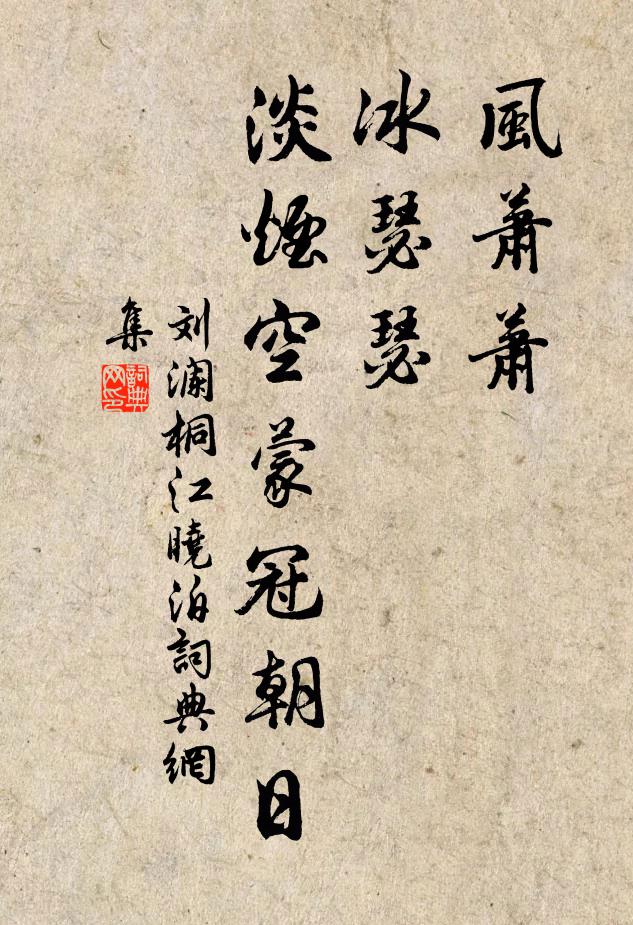 風蕭蕭
冰瑟瑟
淡煙空蒙冠朝日
刘澜桐江曉泊詞典網
集
詞典
网印